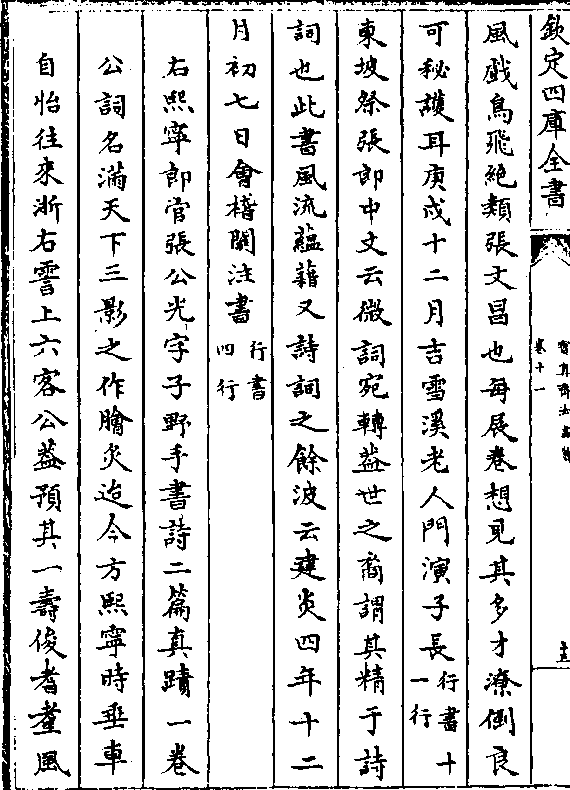 欽定四庫全書
寶真齋法書贊
卷十一
十五
風戲鳥飛絶類張文昌也每展卷想見其多才潦倒良
可秘䕶耳庚戌十二月吉雪溪老人門演子長行書十一行
東坡祭張郎中文云微詞宛轉葢世之裔謂其精于詩
詞也此書風流蘊藉又詩詞之餘波云建炎四年十二
月初七日會稽關注書行書四行
右熙寧郎官張公光字子野手書詩二篇真蹟一卷
公詞名滿天下三影之作膾炙迨今方熙寧時垂車
自怡往來浙右霅上六客公葢預其一壽俊耆耋風